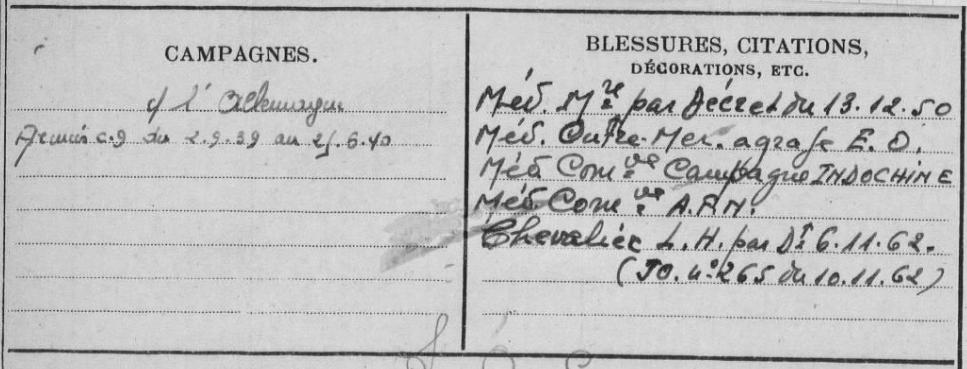 CAMPAGNES.
c/ l'Allemagne
Armée c.g du 2.9.39 au 25.6.40
BLESSURES, CITATIONS,
DÉCORATIONS, ETC.
Méd. Mre par Décret du 13.12.50
Méd. Outre-Mer. agrafe E.O.
Méd Comve Campagne INDOCHINE
Méd. Comve A.F.N.
Chevalier L.H. par Dt 6.11.62.
(JO. n° 265 du 10.11.62)